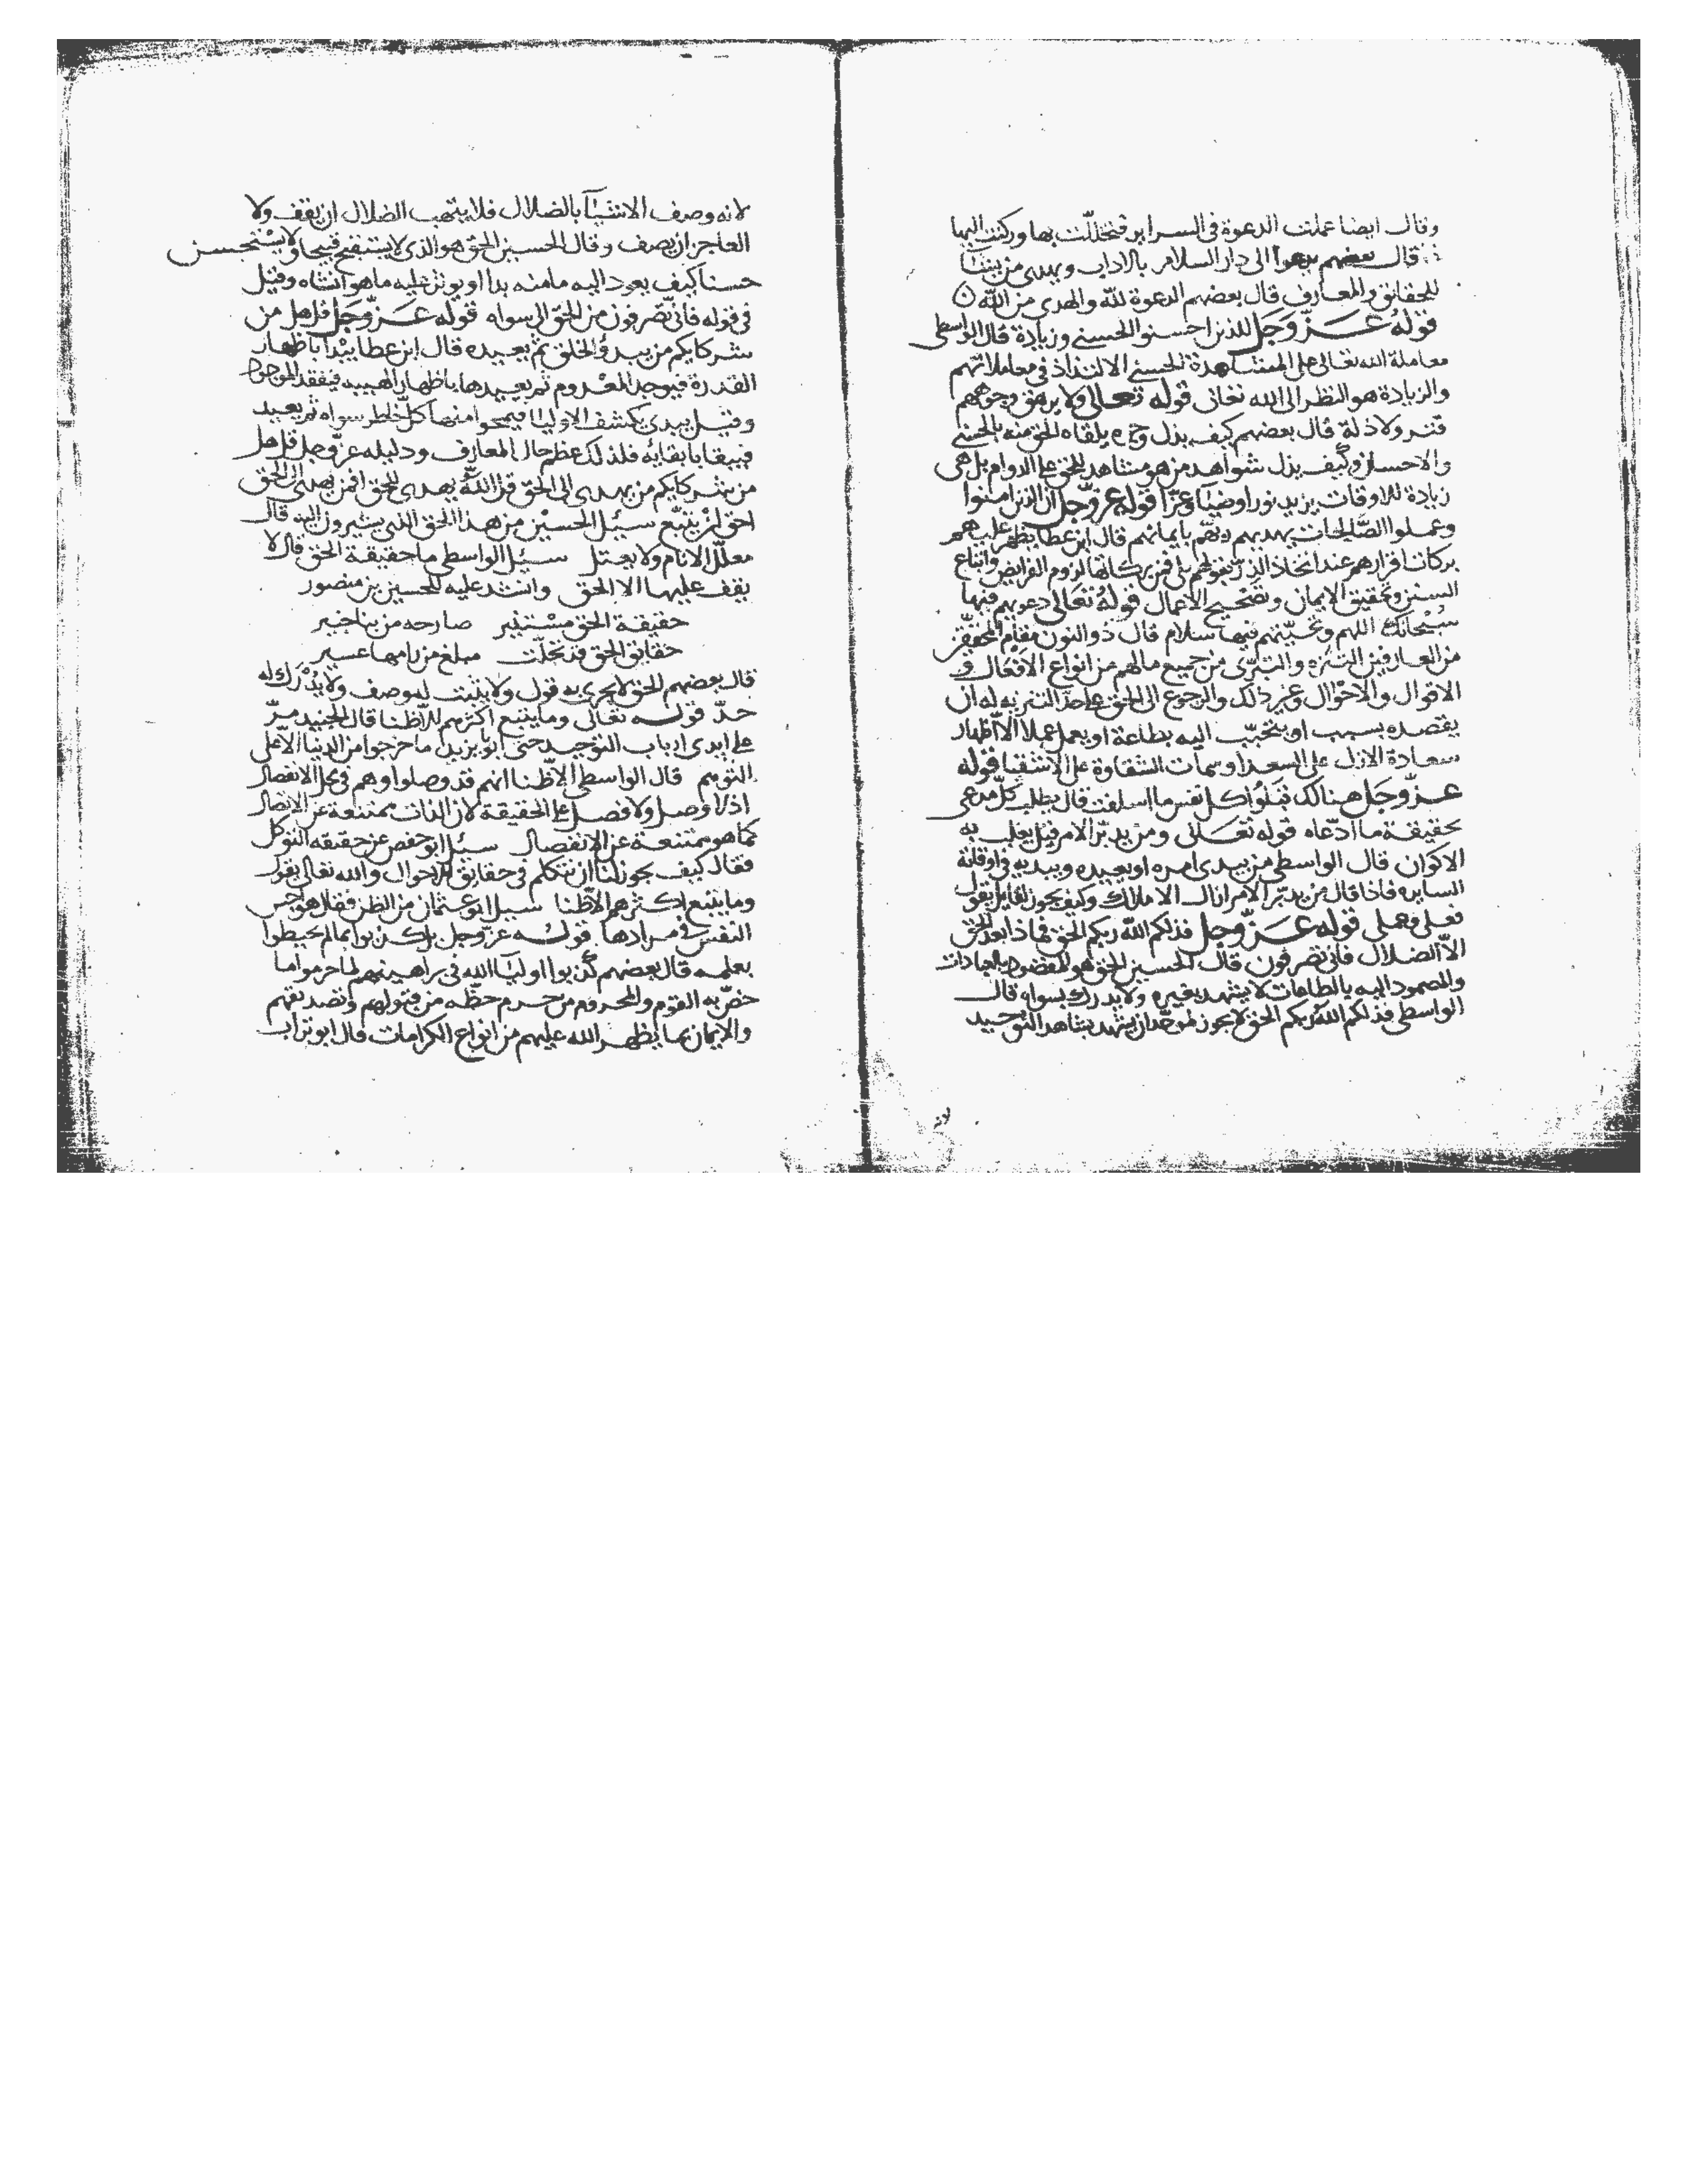 وقال ايضا عملت الدعوة فى السراير فتحللت بها وركنت اليها
قال بعضهم يدعوا الى دار السلام بالاداب ويهدى من يشا
للحقايق والمعارف قال بعضهم الدعوة لله والهدى من الله
قوله عز وجل للذين احسنوا الحسنى وزيادة قال الواسطى
معاملة الله تعالى على المشاهدة الحسنى الالتذاذ فى معاملاتهم
والزيادة هو النظر الى الله تعالى قوله تعالى ولا يرهق وجوههم
قتر ولا ذلة قال بعضهم كيف يذل وجوه يلقاه الحق منه بالحسنى
والاحسان وكيف يذل شواهد من هو مشاهد للحق على الدوام بل هى
زيادة للاوقات يزيد نورا وضيآ وعزا قوله عز وجل ان الذين امنوا
وعملوا الصالحات يهديهم ربهم بايمانهم قال ابن عطا يظهر عليهم
بركات اقرارهم عند اتخاذ الذر بقولهم بلى فمن بركاتها لزوم الفرايض واتباع
السنن وتحقيق الايمان وتصحيح الاعمال قوله تعالى دعويهم فيها
سبحانك اللهم وتحيتهم فيها سلام قال ذو النون مقام المحققين
من العارفين التنزه والتبرى من جميع مالهم من انواع الافعال و
الاقوال والاحوال وغير ذلك والرجوع الى الحق على حد التنزيه له ان
يقصده بسبب او يتحبب اليه بطاعة او يعمل عملا الا اظهار
سعادة الازل على السعدا وسمات الشقاوة على الاشقيا قوله
عز وجل هنالك تبلوا كل نفس ما اسلفت قال يطلب كل مدعى
بحقيقة ما ادعاه قوله تعالى ومن يدبر الامر قيل يغلب به
الاكوان قال الواسطى من يبدى امره او يعيده ويبديه فى اوقاته
السايره فاذا قال من يدبر الامر ازال الاملاك وكيف يجوز لقايل يقول
فعلى وعملى قوله عز وجل فذلكم الله ربكم الحق فماذا بعد الحق
الا الضلال فانى تصرفون قال الحسين الحق هو المقصود بالعبادات
والصمود اليه بالطاعات لا يشهد بغيره ولا يدرك بسواه قال
الواسطى فذلكم الله ربكم الحق لا يجوز لموحد ان يشهد بشاهد التوحيد
لانه وصف الاشيآ بالضلال فلا يتهب الضلال ان يقف ولا
العاجز ان يصف وقال الحسين الحق هو الذى لا يستقبح قبيحا ولا يستحسن
حسنا كيف يعود اليه ما منه بدا او يوثر عليه ما هو انشاه وقيل
فى قوله فانى تصرفون من الحق الى سواه قوله عز وجل قل هل من
شركايكم من يبدؤ الخلق ثم يعيده قال ابن عطا يبدأ باظهار
القدرة فيوجد المعدوم ثم يعيدها باظهار الهيبه فيفقد الموجود
وقيل يبدى بكشف الاوليا فيمحوا منها كل خاطر سواه ثم يعيد
فيبقا بابقايه فلذلك عظم حال المعارف ودليله عز وجل قل هل
من شركايكم من يهدى الى الحق قل الله يهدى للحق افمن يهدى الى الحق
احق ان يتبع سئل الحسين من هذا الحق الذى يشيرون اليه قال
معلل الانام ولا يعتل سئل الواسطى ما حقيقة الحق قال لا
يقف عليها الا الحق وانشد عليه للحسين بن منصور
حقيقة الحق مستنير صارحه من بنا خبير
حقايق الحق قد تجلت مبلغ من رامها عسير
قال بعضهم الحق لا يجرى به قول ولا يثبت له وصف ولا يدرك له
حد قوله تعالى وما يتبع اكثرهم الا ظنا قال الجنيد مر
على ايدى ارباب التوحيد حتى ابو يزيد ما خرجوا من الدنيا الا على
التوهم قال الواسطى الا ظنا انهم قد وصلوا وهم فى محل الانفصال
اذ لا وصل ولا فصل على الحقيقة لان الذات ممتنعة عن الاتصال
كما هو ممتنعة عن الانفصال سئل ابو حفص عن حقيقه التوكل
فقال كيف يجوز لنا ان نتكلم فى حقايق الاحوال والله تعالى يقول
وما يتبع اكثرهم الا ظنا سيل ابو عثمان من الظن فقال هو اجس
النفس فى مرادها قوله عز وجل بل كذبوا بما لم يحيطوا
بعلمه قال بعضهم كذبوا اوليآ الله فى براهينهم لما حرموا ما
خص به القوم والمحروم من حرم حظه من قبولهم وتصديقهم
والايمان بما يظهر الله عليهم من انواع الكرامات قال ابو تراب